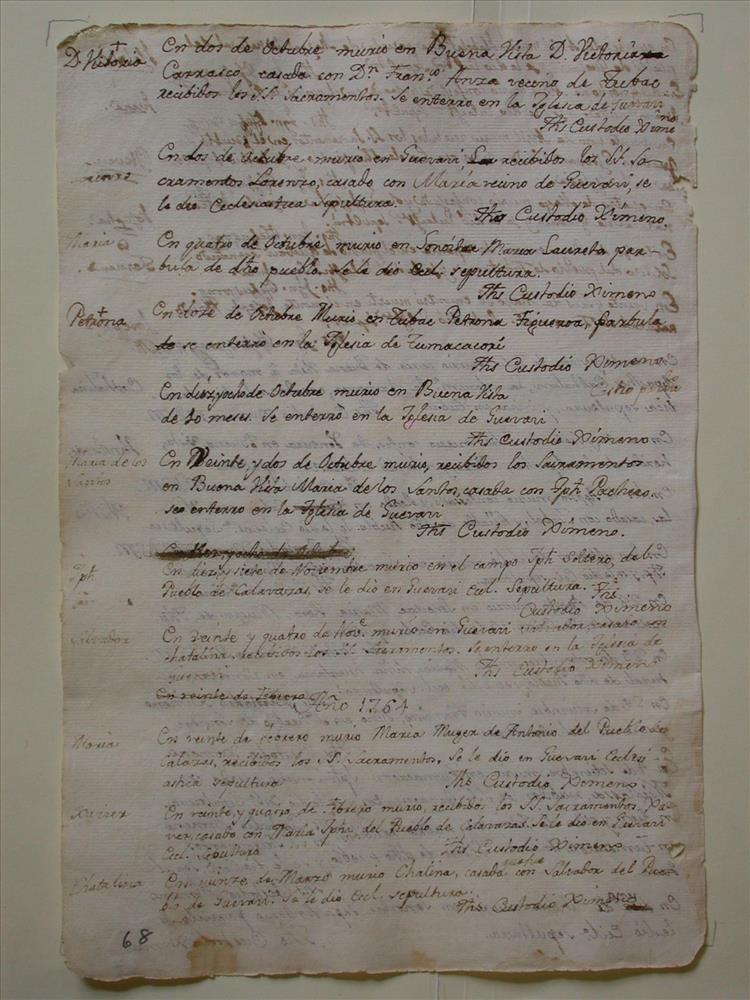 D. Victoria
En dos de Octubre murio en Buena Vista D. Victoria
Carrasco, casada con Dn. Franco. Anza vecino de Tubac
recibidos los SS. Sacramentos. Se enterro en la Iglesia de Guevavi
Ths Custodio Ximeno
Lorenzo
En dos de Octubre murio en Guevavi, recibidos los SS. Sa-
cramentos Lorenzo, casado con María vecino de Guevavi, se
le dio Ecclesiastica Sepultura.
Ths Custodio Ximeno.
Maria
En quatro de Octubre murio en Sonóita Maria Laureta par-
bula de dho pueblo. Se le dio Ecl. sepultura.
Ths Custodio Ximeno
Petrona
En doze de Octubre Murio en Tubac Petrona Figueroa, parbula
se enterro en la Iglesia de Tumacacori
Ths Custodio Ximeno
En diez yocho de Octubre murio en Buena Vista
de 10 meses. Se enterró en la Iglesia de Guevavi
Ths Custodio Ximeno
Maria de los
Santos
En Veinte, y dos de Octubre murio, recibidos los Sacramentos
en Buena Vista Maria de los Santos, casada con Jph Pacheco
see enterro en la Iglesia de Guevavi
Ths Custodio Ximeno.
Jph
En diez, y siete de Noviembre murio en el campo Jph Soltero, del
Pueblo de Calavazas, se le dio en Guevavi Ecl. Sepultura. Ths
Custodio Ximeno
Salvador
En veinte y quatro de Nove. murio en Guevavi Salvador casado con
Chatalina, recibidos los SS. Sacramentos. Se enterro en la Iglesia de
Guevavi
Ths Custodio Ximeno
En veinte de Febrero Año 1764
Maria
En veinte de Febrero murio Maria Muger de Antonio del Pueblo de
Calavazas, recibidos los SS. Sacramentos. Se le dio en Guevavi Eccleси-
astica sepultura
Ths Custodio Ximeno
Xavier
En veinte, y quatro de Febrero murio, recibidos los SS. Sacramentos. Xa-
vier, casado con Maria Jpha del Pueblo de Calavazas. Se le dio en Guevavi
Eccl. sepultura
Ths Custodio Ximeno
Chatalina
En quinze de Marzo murio Chalina, casada que fue con Salvador del Pue-
blo de Guevavi. Se le dio Eccl. sepultura.
Ths Custodio Ximeno
68